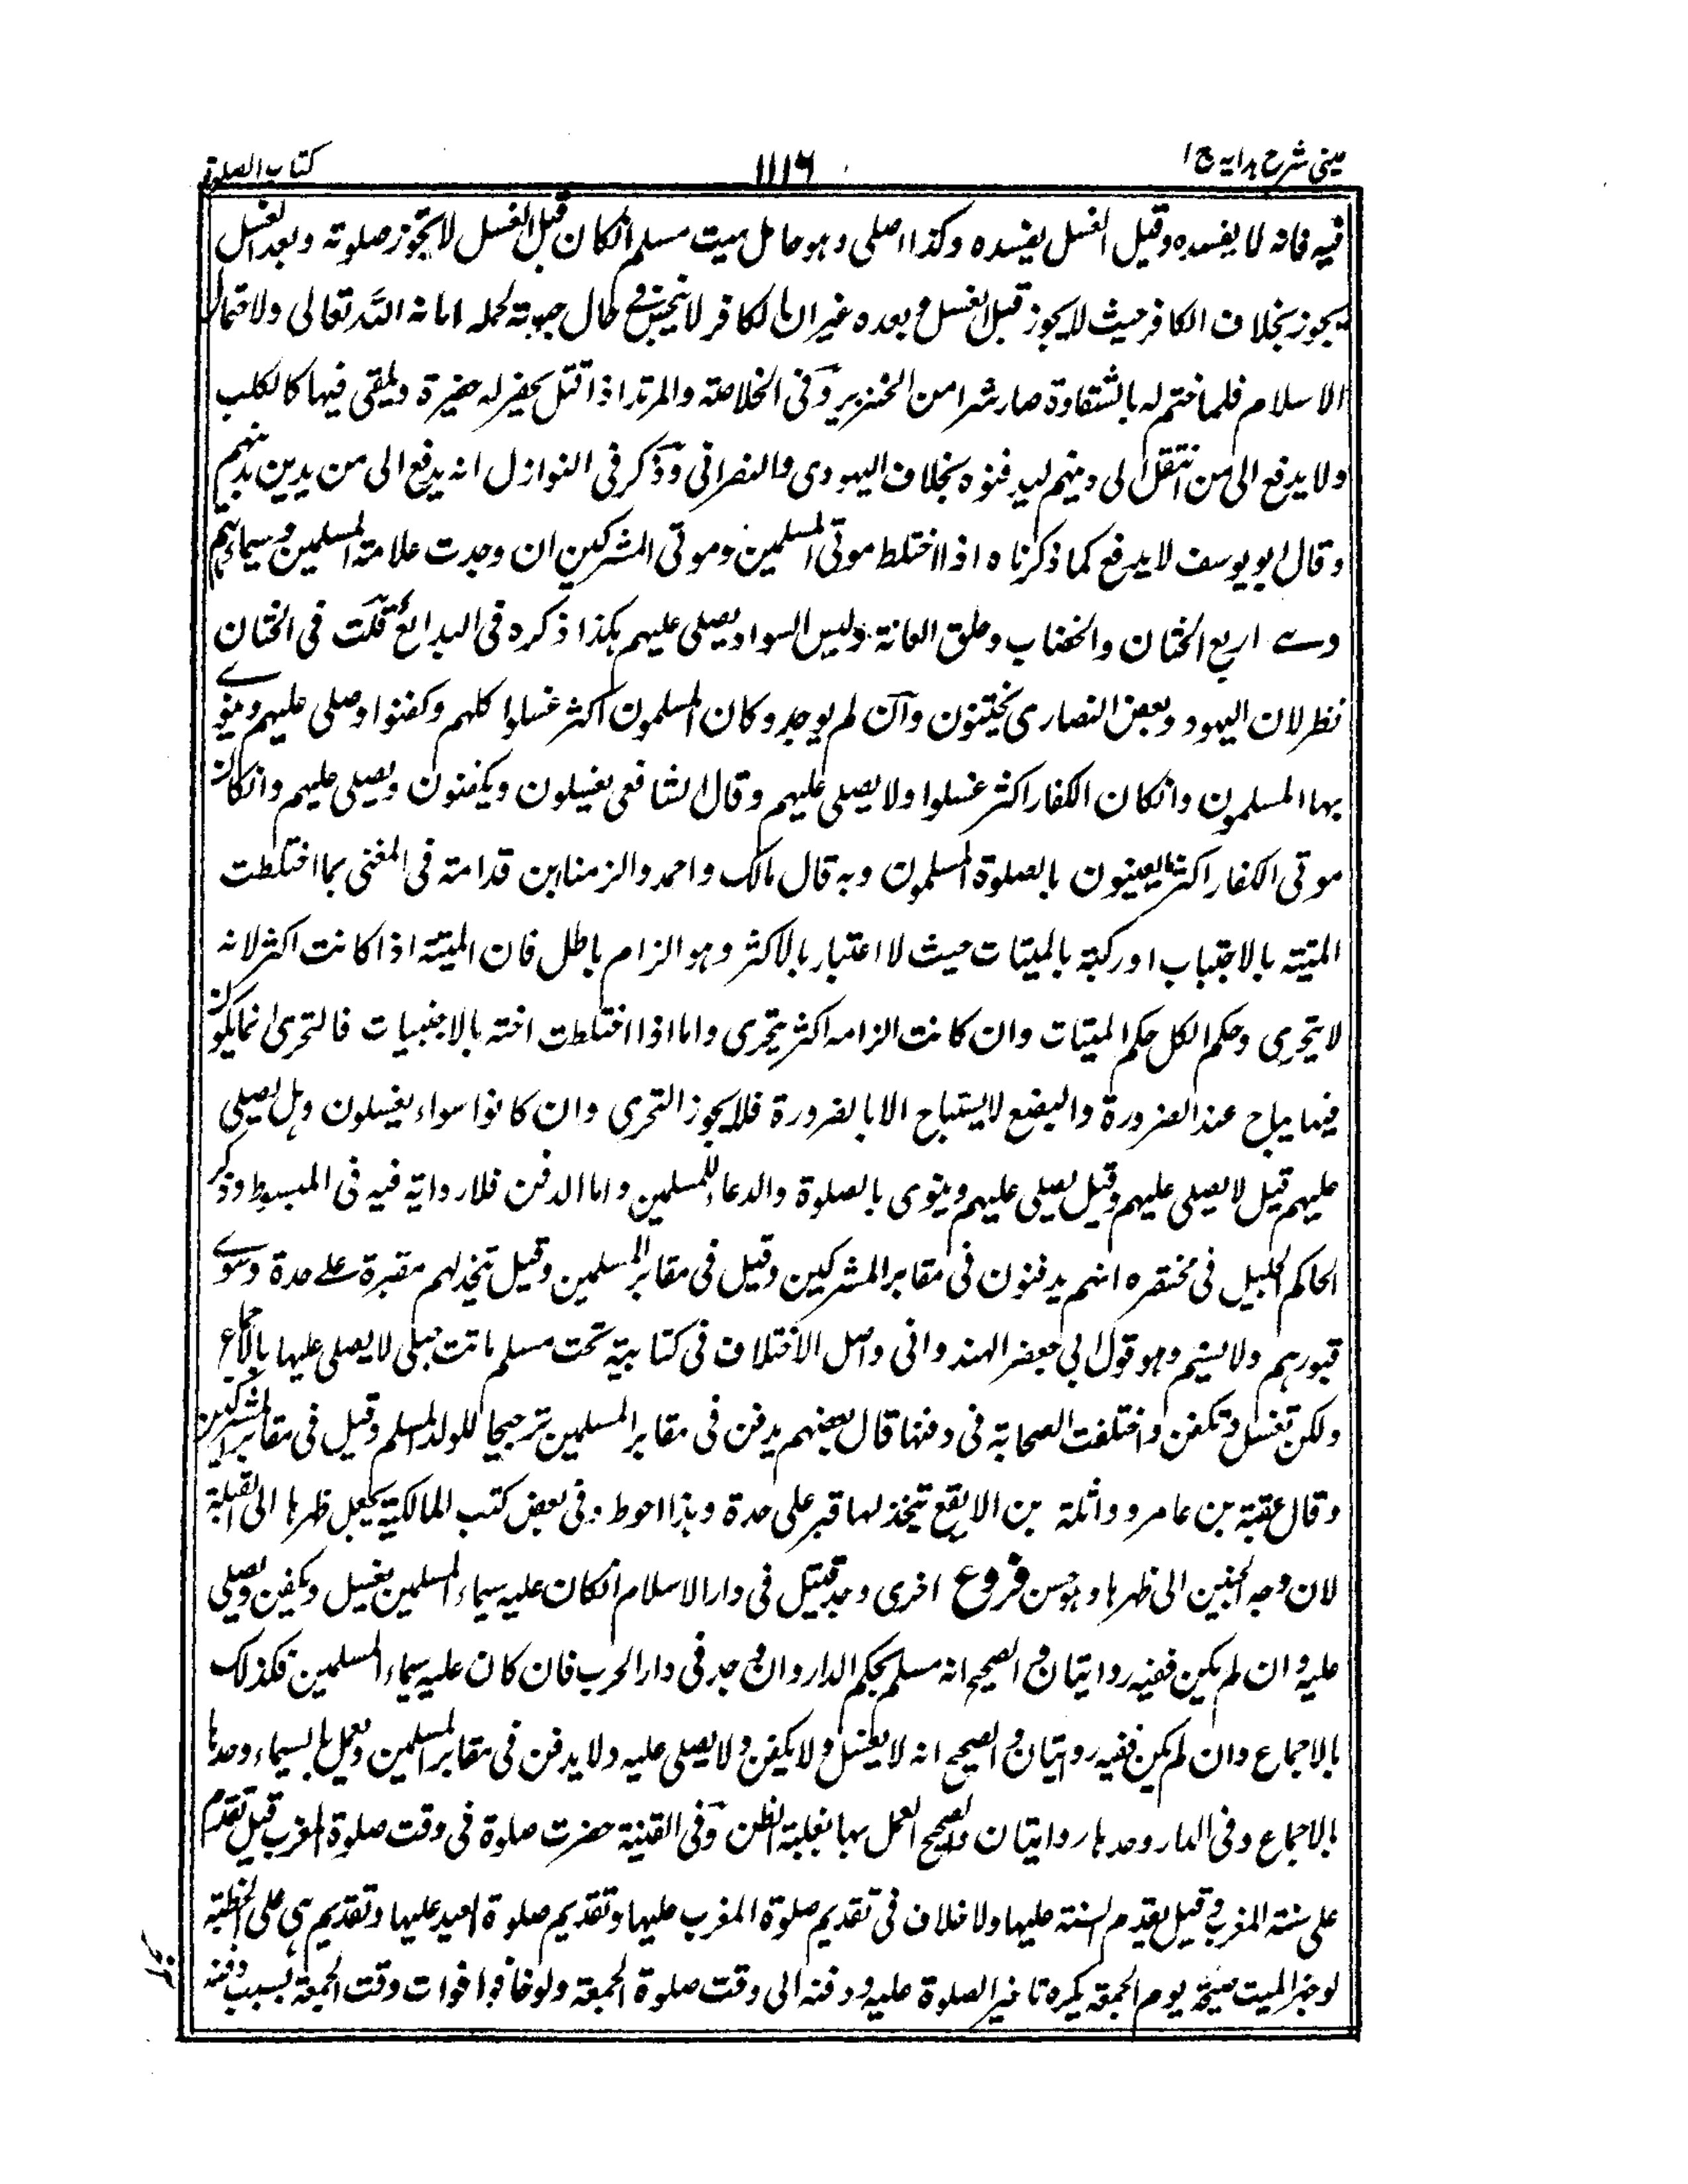 عینی شرح ہدایہ ج ۱
۱۱۱۶
کتاب الصلوة
فیه فانه لا یفسده وقبل الغسل یفسده وکذا اصلی وهو حامل میت مسلم انکان قبل الغسل لا تجوز صلوته وبعد الغسل
یجوز بخلاف الکافر حیث لا یجوز قبل الغسل وبعده غیر ان الکافر لا ینجس فی حال حیوته لحمله امانة الله تعالی ولاحتمال
الاسلام فلما ختم له بالشقاوة صار شرا من الخنزیر وفی الخلاصة والمرتد اذا قتل یحفر له حفیرة ویلقی فیها کالکلب
ولا یدفع الی من انتقل الی دینهم لیدفنوه بخلاف الیهودی والنصرانی وذکر فی النوازل انه یدفع الی من یدین بدینهم
وقال ابو یوسف لا یدفع کما ذکرنا ه اذا اختلط موتی المسلمین وموتی المشرکین ان وجدت علامة المسلمین وسیماءهم
وے اربع الختان والخضاب وحلق العانة ولبس السواد یصلی علیهم هکذا ذکره فی البدائع قلت فی الختان
نظر لان الیهود وبعض النصاری یختتنون وان لم یوجد وکان المسلمون اکثر غسلوا کلهم وکفنوا وصلی علیهم وینوے
بها المسلمون وانکان الکفار اکثر غسلوا ولا یصلی علیهم وقال الشافعی یغسلون ویکفنون ویصلی علیهم وانکان
موتی الکفار اکثر یعینون بالصلوة المسلمون وبه قال مالک واحمد والزمنا ابن قدامة فی المغنی بما اختلطت
المیتة بالاجنبیات او رکبة بالمیتات حیث لا اعتبار بالاکثر وهو الزام باطل فان المیتة اذا کانت اکثر لانه
لا یتحری وحکم الکل حکم المیتات وان کانت الزامه اکثر یتحری واما اذا اختلطت اخته بالاجنبیات فالتحری انما یکون
فیها یباح عند الضرورة والبضع لا یستباح الا بالضرورة فلا یجوز التحری وان کانوا سواء یغسلون وهل یصلی
علیهم قیل لا یصلی علیهم وقیل یصلی علیهم وینوی بالصلوة والدعاء للمسلمین واما الدفن فلا روایة فیه فی المبسوط وذکر
الحاکم الجلیل فی مختصره انهم یدفنون فی مقابر المشرکین وقیل فی مقابر المسلمین وقیل تتخذ لهم مقبرة علے حدة وتسوے
قبورهم ولا یسنم وهو قول ابی جعفر الهندوانی واصل الاختلاف فی کتابیة تحت مسلم ماتت حبلی لا یصلی علیها بالاجماع
ولکن تغسل وتکفن واختلفت الصحابة فی دفنها قال بعضهم یدفن فی مقابر المسلمین ترجیحا للولد المسلم وقیل فی مقابر المشرکین
وقال عقبة بن عامر وواثلة بن الاسقع تتخذ لها قبر علی حدة وهذا احوط وفی بعض کتب المالکیة یجعل ظهرها الی القبلة
لان وجه الجنین الی ظهرها وهو حسن فروع اخری وجد قتیل فی دار الاسلام انکان علیه سیماء المسلمین یغسل ویکفن ویصلی
علیه وان لم یکن ففیه روایتان والصحیح انه مسلم بحکم الدار وان وجد فی دار الحرب فان کان علیه سیماء المسلمین فکذلک
بالاجماع وان لم یکن ففیه روایتان والصحیح انه لا یغسل ولا یکفن ولا یصلی علیه ولا یدفن فی مقابر المسلمین ویعمل بالسیماء وحدها
بالاجماع وفی الدار وحدها روایتان والصحیح العمل بها بغلبة الظن وفی القنیة حضرت صلوة فی وقت صلوة المغرب قیل تقدم
علی سنة المغرب وقیل یقدم السنة علیها ولا خلاف فی تقدیم صلوة المغرب علیها وتقدیم صلوة العید علیها وتقدیم هی علی الخطبة
لو جهز المیت صبیحة یوم الجمعة یکره تاخیر الصلوة علیه ودفنه الی وقت صلوة الجمعة ولو خافوا فوات وقت الجمعة بسبب دفنه